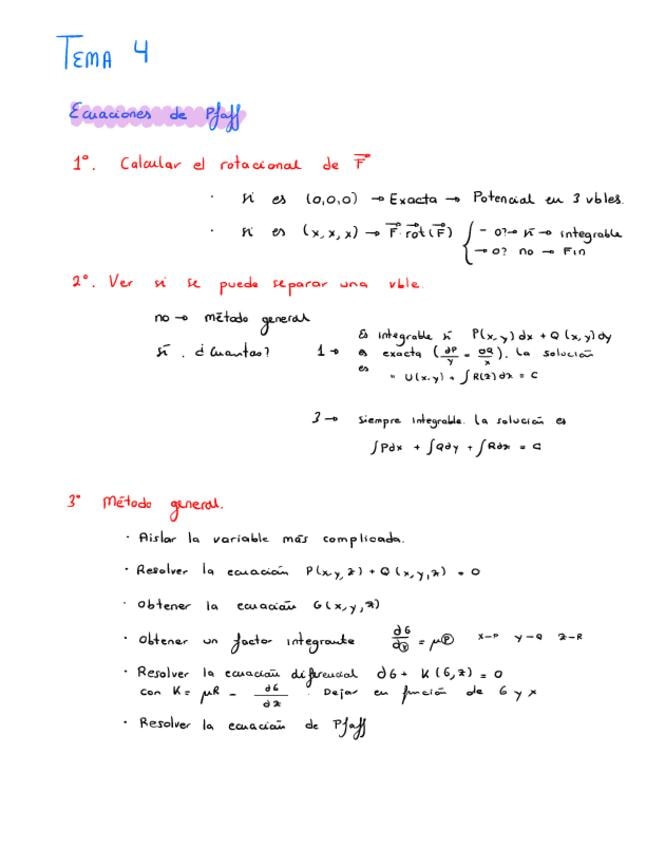 TEMA 4
Ecuaciones de Pfaff
1º. Calcular el rotacional de F⃗
· si es (0,0,0) → Exacta → Potencial en 3 vbles.
· si es (x, x, x) → F⃗·rot(F⃗) { - 0? → si → integrable
→ 0? no → Fin
2º. Ver si se puede separar una vble.
no → método general
Si. ¿Cuantas? 1 → Es integrable si P(x,y)dx + Q(x,y)dy
es exacta (∂P/y = ∂Q/x). La solución
es = U(x,y) + ∫R(z)dz = C
3 → Siempre integrable. La solución es
∫Pdx + ∫Qdy + ∫Rdz = C
3º Método general.
· Aislar la variable más complicada.
· Resolver la ecuación P(x,y,z) + Q(x,y,z) = 0
· Obtener la ecuación G(x,y,z)
· Obtener un factor integrante ∂G/∂x = μP x-P y-Q z-R
· Resolver la ecuación diferencial dG + K(G,z) = 0
con K = μR - ∂G/∂z. Dejar en función de G y x
· Resolver la ecuación de Pfaff